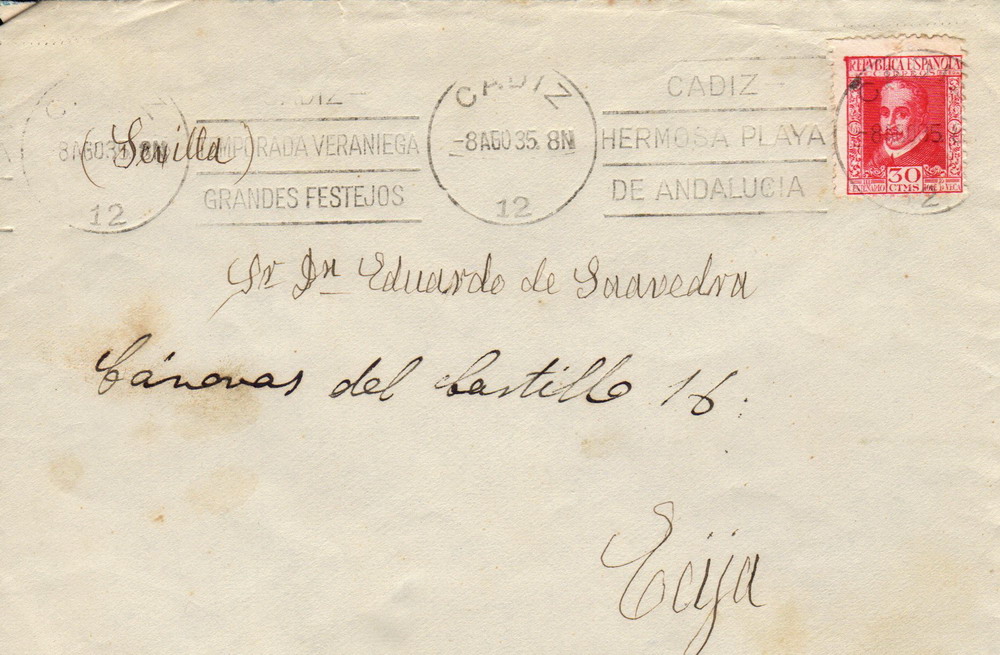 CADIZ
-8AGO35. 8N
12
CADIZ
TEMPORADA VERANIEGA
GRANDES FESTEJOS
CADIZ
-8AGO35. 8N
12
CADIZ
HERMOSA PLAYA
DE ANDALUCIA
REPVBLICA ESPAÑOLA
CORREOS
30
CTMS
III
CENTENARIO
(Sevilla)
Sr Dn Eduardo de Saavedra
Cánovas del Castillo 16.
Ecija